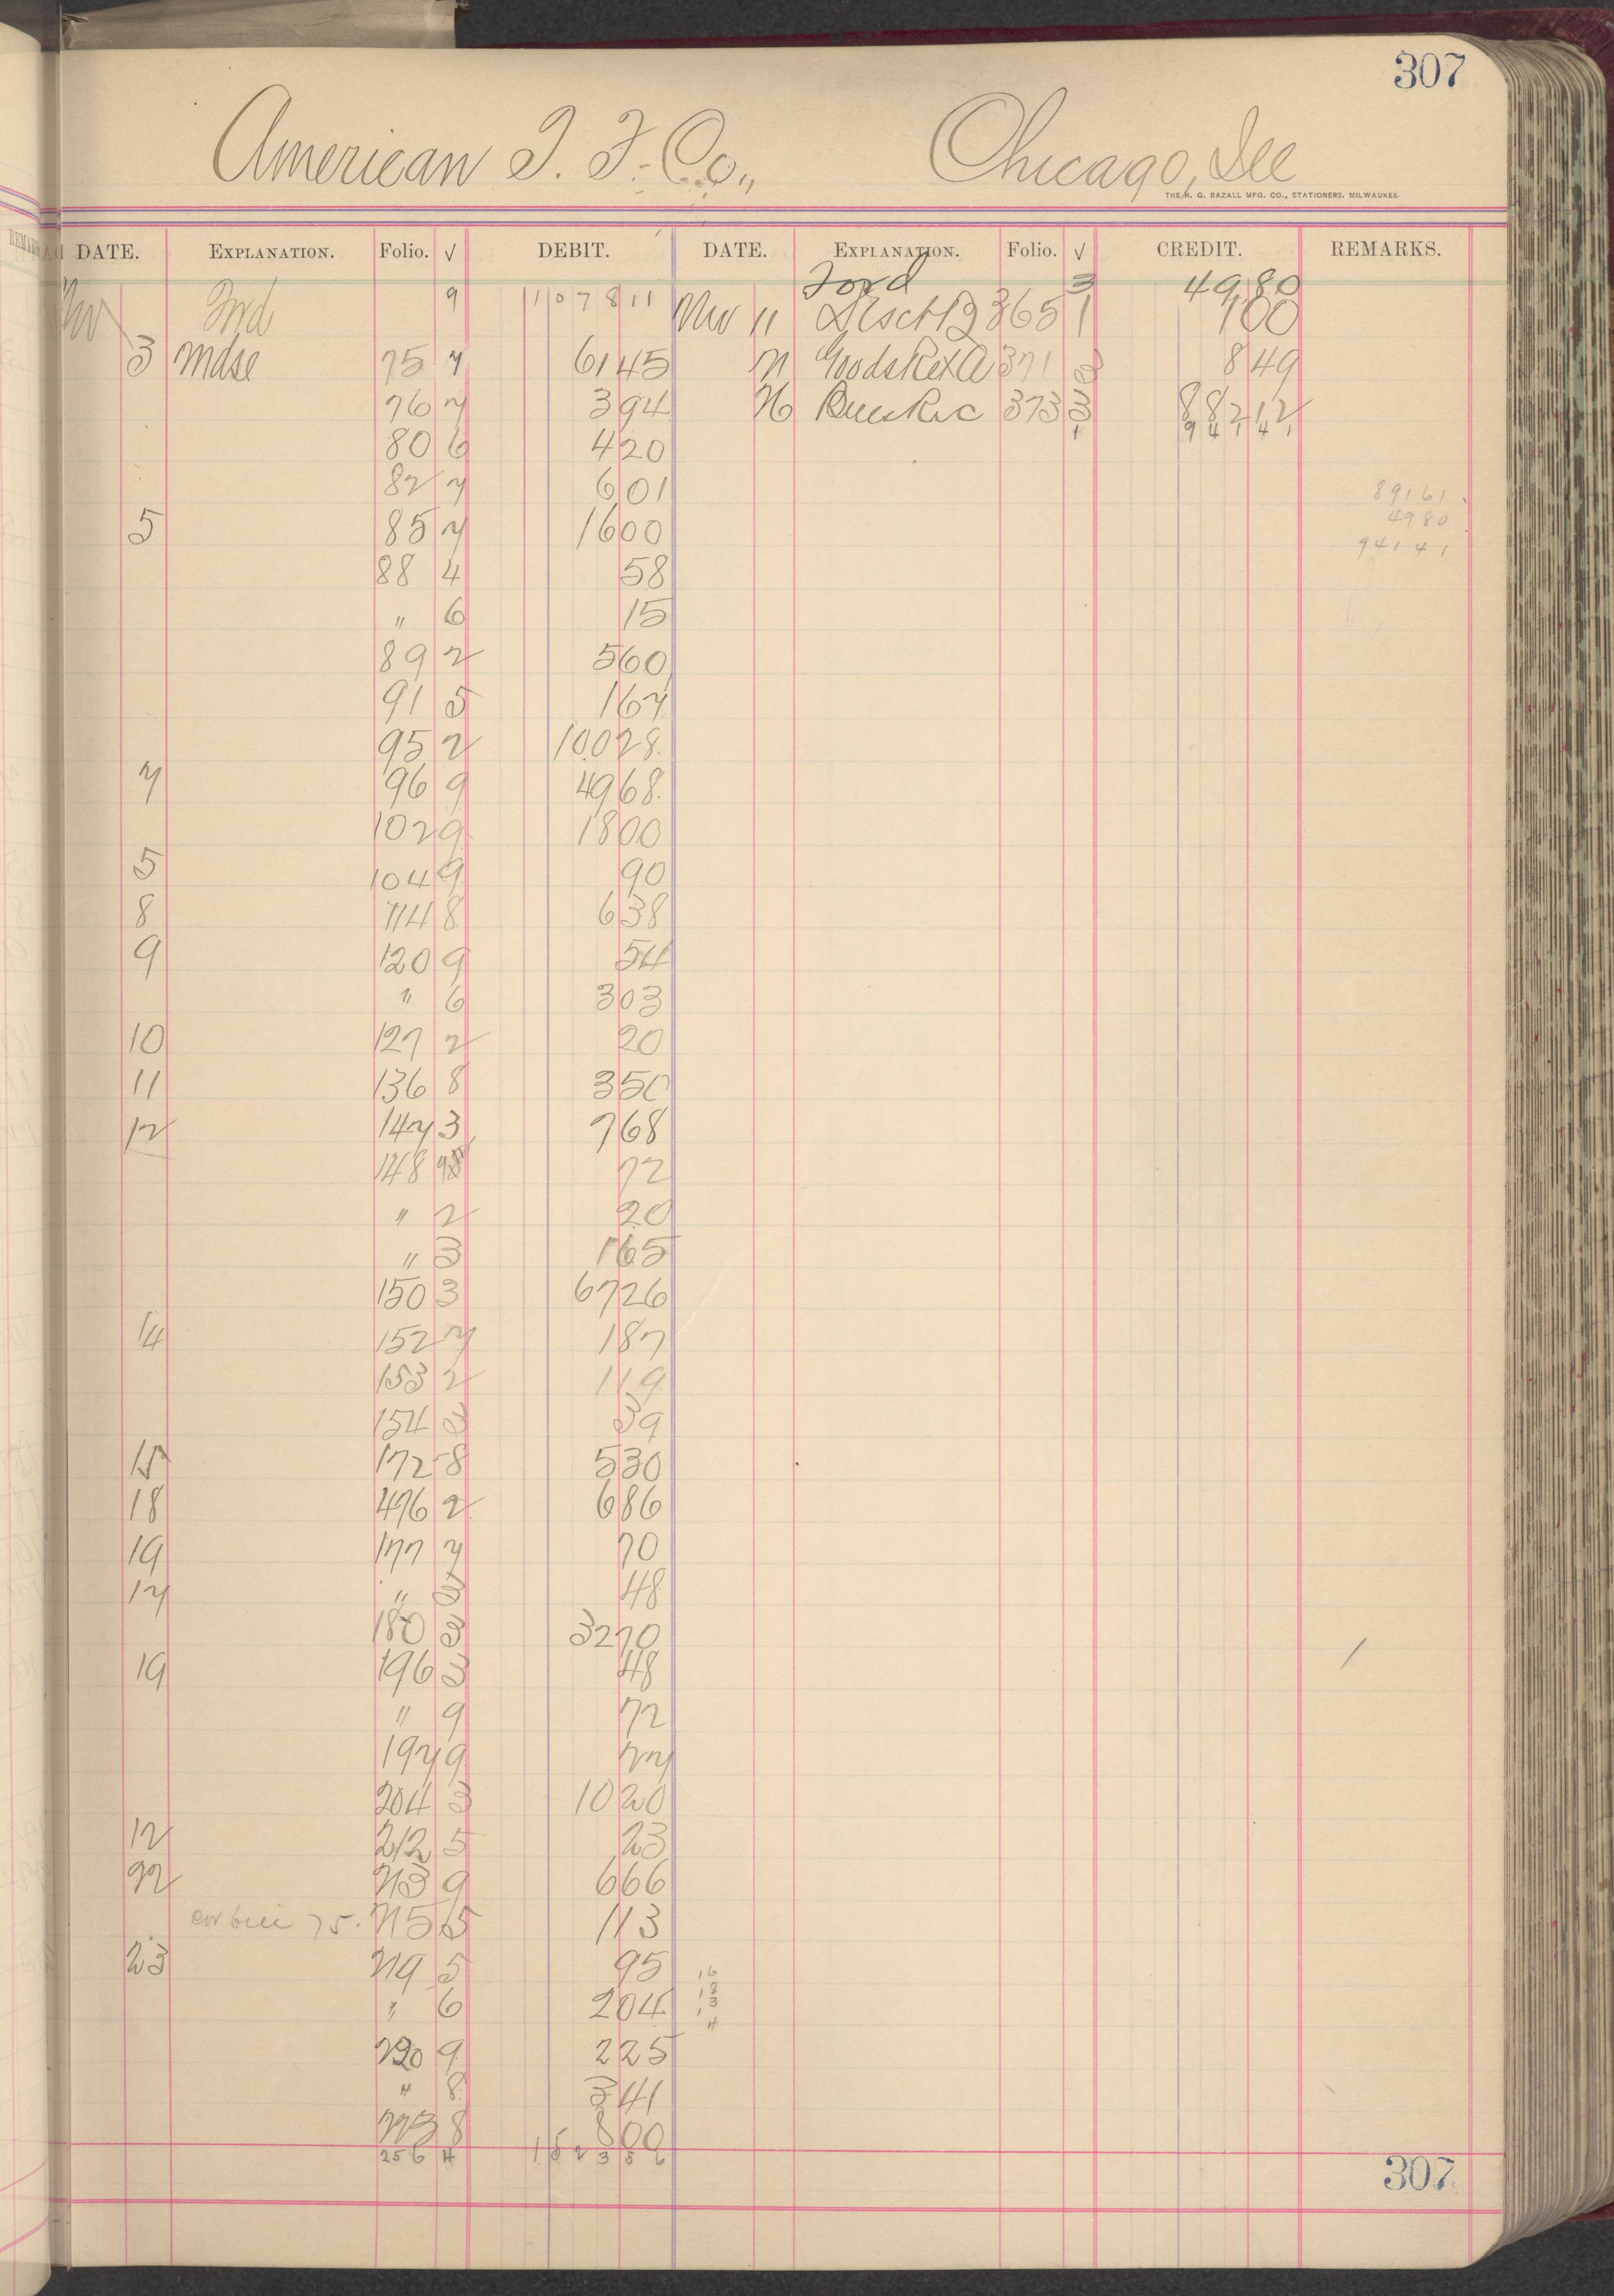 307
American T. F. Co., Chicago, Ill
THE H. G. RAZALL MFG. CO., STATIONERS, MILWAUKEE
DATE. EXPLANATION. Folio. √ DEBIT. DATE. EXPLANATION. Folio. √ CREDIT. REMARKS.
Ford 3 49 80
Nov Ford 9 1078 11 Nov 11 365 1 1 00
3 Mdse 75 7 61 45 21 Goods Retd 371 3 8 49
76 7 3 94 26 373 3 882 12
80 6 4 20 1 941 41
82 7 6 01 891 61
5 85 7 16 00 49 80
88 4 58 941 41
" 6 15
89 2 5 60
91 5 1 67
95 2 100 28
7 96 9 49 68
102 9 18 00
5 104 9 90
8 114 8 6 38
9 120 9 54
" 6 3 03
10 127 2 20
11 136 8 3 50
12 147 3 7 68
148 72
" 2 20
" 3 1 65
150 3 67 26
14 152 7 1 87
153 2 1 19
154 3 39
15 172 8 5 30
18 176 2 6 86
19 177 7 70
17 " 3 48
180 3 32 70
19 196 3 48
" 9 72
197 9 77
204 3 10 20
12 212 5 23
22 213 9 6 66
cor bill 75. 215 5 1 13
23 219 5 95 16
" 6 2 04 18 13 4
220 9 2 25
" 8 3 41
223 8 8 00
256 4 1523 56
307